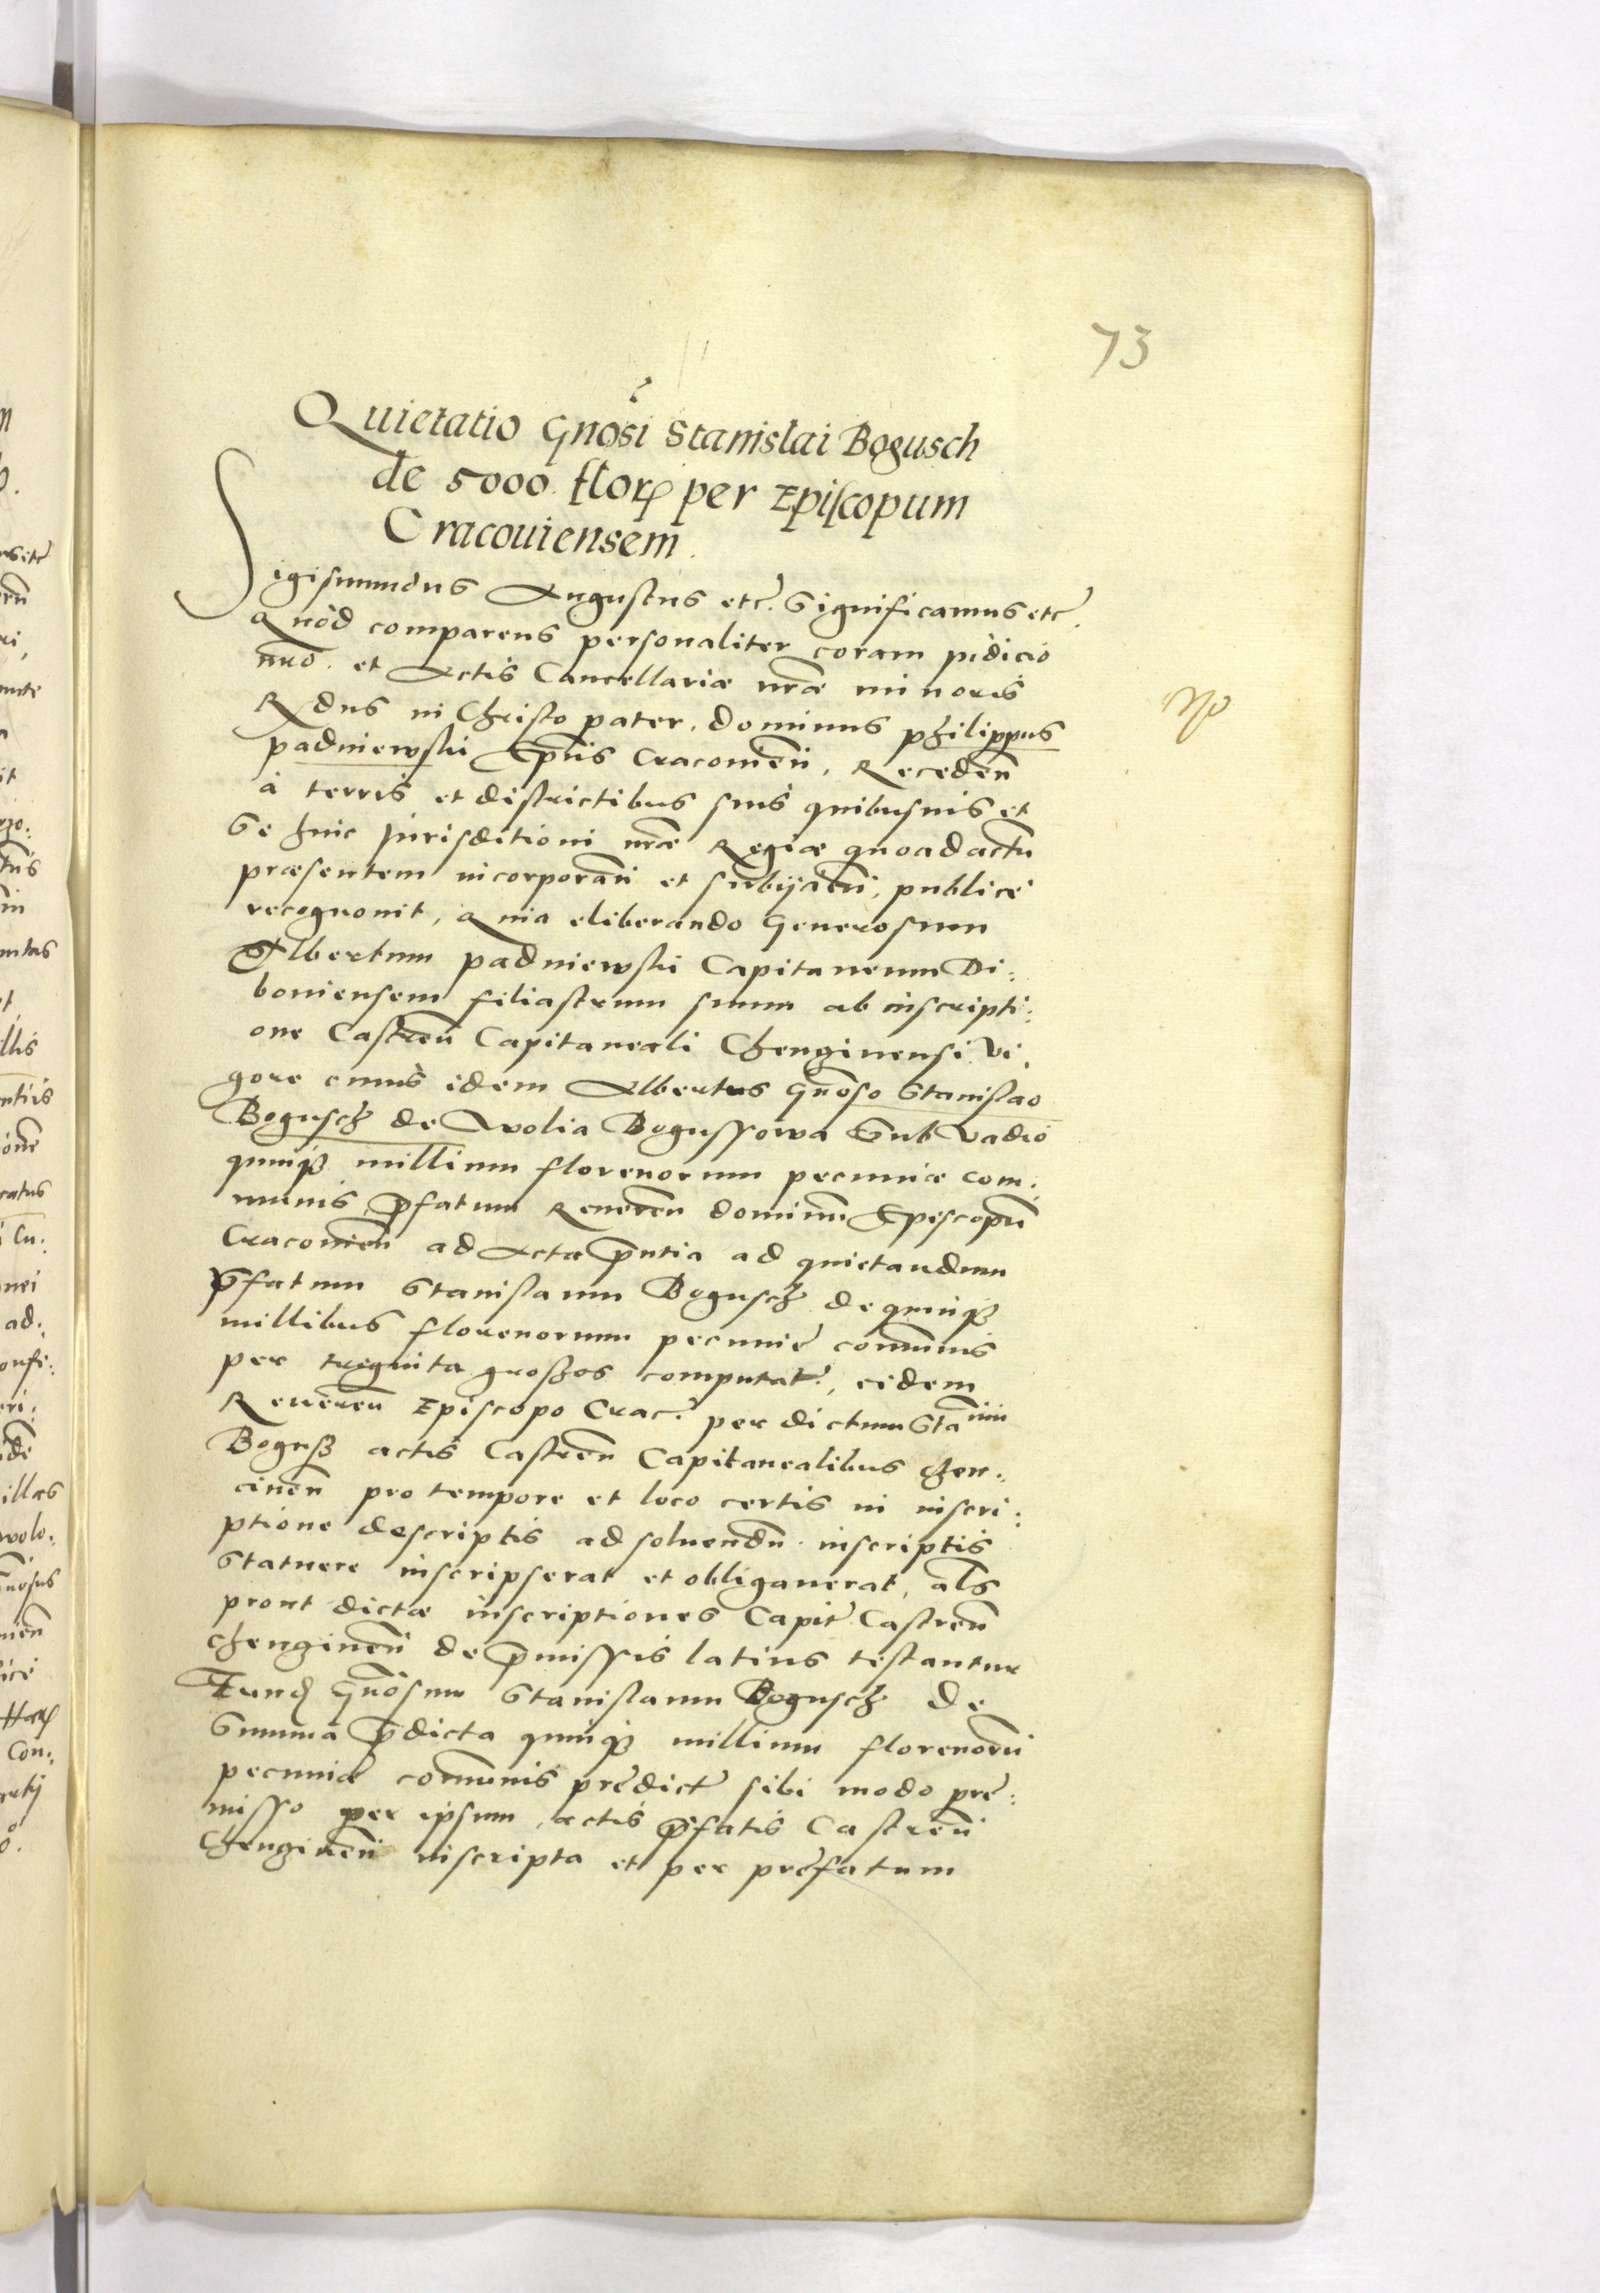 73
Quietatio Gnosi Stanislai Bogusch
de 5000 flor per Episcopum
Cracouiensem.
Sigismundus Augustus etc. Significamus etc.
Quòd comparens personaliter coram iudicio
nro. et Actis Cancellariæ nræ minoris
Rdus in Christo pater, dominus Philippus
Padniewski Epus Cracouien, Receden
à terris et districtibus suis quibusuis et
se huic Jurisditioni nræ Regiæ quoad actu
præsentem incorporan et subijcien, publicè
recognouit, Quia eliberando Generosum
Albertum Padniewski Capitaneum Di:
boniensem filiastrum suum ab inscripti:
one Castren Capitaneali Chenginensi Vi,
gore cuius idem Albertus Gnoso Stanislao
Bogusch de Wolia Bogussowa Sub vadio
quinq millium florenorum pecuniæ com:
munis pfatum Reueren dominu Episcopu
Cracouien ad Acta pntia ad quietandum
Pfatum Stanislaum Bogusch de quinq
millibus florenorum pecunie comunis
per treginta großos computat, eidem
Reueren Episcopo Crac. per dictum Sta num
Boguß actis Castren Capitanealibus chen:
cinen pro tempore et loco certis in inscri:
ptione descriptis ad soluendu inscriptis
Statuere inscripserat et obligauerat, als
prout dictæ inscriptiones Capit Castren
chenginen de pmissis latius testantur
Eund Gnosum Stanislaum Bogusch de
Summa pdicta quinq millium florenoru
pecuniæ comunis predict sibi modo pre:
misso per ipsum actis pfatis Castren
Chenginen inscripta et per prefatum